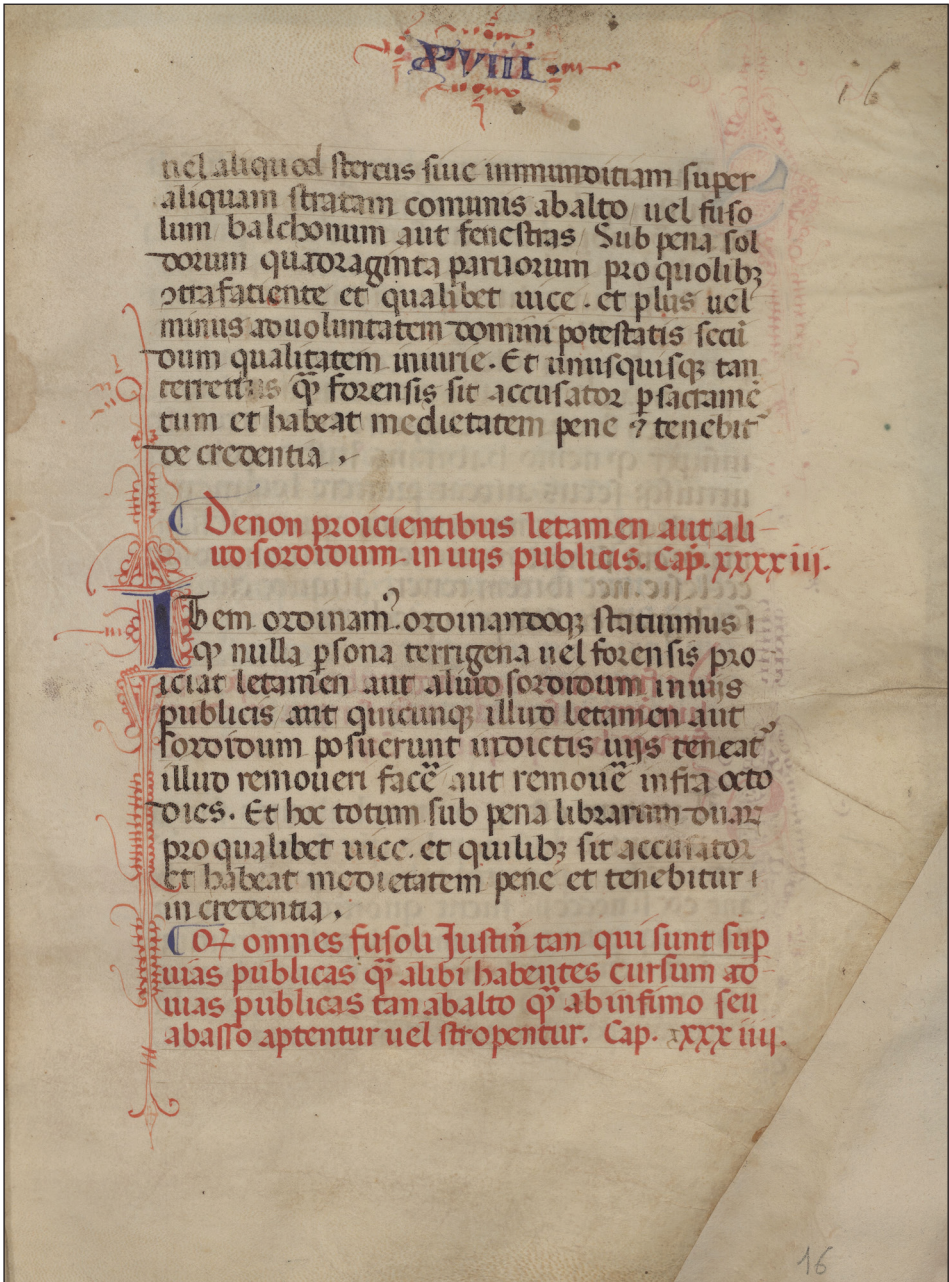 XVIII
16
uel aliquod stercus siue inmunditiam super
aliquam stratam comunis abalto uel fuso
lum balchonum aut fenestras Sub pena sol
dorum quadraginta paruorum pro quolibꝫ
ↄtrafatiente et qualibet uice. et plus uel
minus ad uoluntatem domini potestatis secū
dum qualitatem iniurie. Et unusquisqꝫ tan
terrerius qᷓ forensis sit accusator ꝑsacramē
tum et habeat medietatem pene ⁊ tenebit᷑
de credentia.
De non proicientibus letamen aut ali
ud sordidum in uijs publicis. Cap. xxxxiij.
Item ordinam᾽. ordinandoqꝫ statuimus
ꝙ nulla ꝑsona terrigena uel forensis pro
iciat letamen aut aliud sordidum in uijs
publicis aut quicunqꝫ illud letamen aut
sordidum posuerunt in dictis uijs teneat᷑
illud remoueri facē aut remouē infra octo
dies. Et hoc totum sub pena librarum duaꝝ
pro qualibet uice. et quilibꝫ sit accusator
et habeat medietatem pene et tenebitur
in credentia.
Qꝫ omnes fusoli Justiñ tan qui sunt sup
uias publicas qᷓ alibi habentes cursum ad
uias publicas tan abalto qᷓ ab infimo seu
abasso aptentur uel stropentur. Cap. xxxxiiij.
16